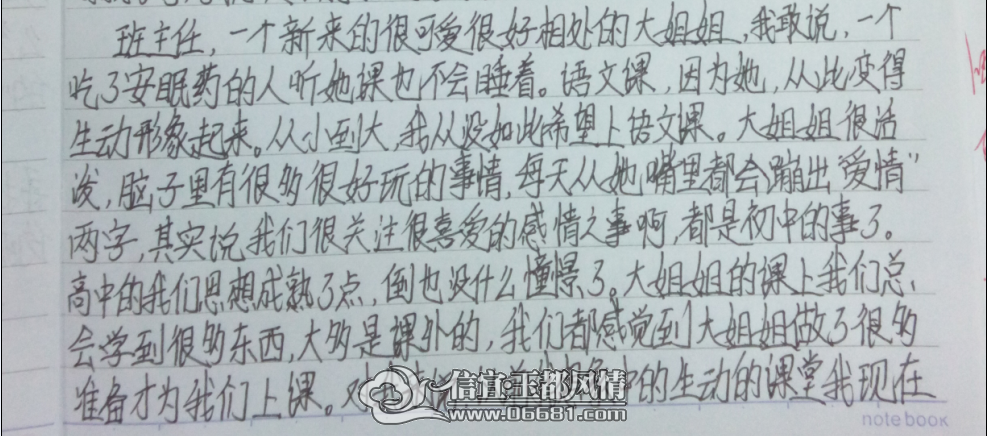 班主任，一个新来的很可爱很好相处的大姐姐，我敢说，一个
吃了安眠药的人听她课也不会睡着。语文课，因为她，从此变得
生动形象起来。从小到大，我从没如此希望上语文课。大姐姐很活
泼，脑子里有很多很好玩的事情，每天从她嘴里都会蹦出“爱情”
两字，其实说我们很关注很喜爱的感情之事啊，都是初中的事了。
高中的我们思想成熟了点，倒也没什么憧憬了。大姐姐的课上我们总
会学到很多东西，大多是课外的，我们都感觉到大姐姐做了很多
准备才为我们上课。对 中的生动的课堂我现在
信宜玉都风情
www.06681.com
notebook